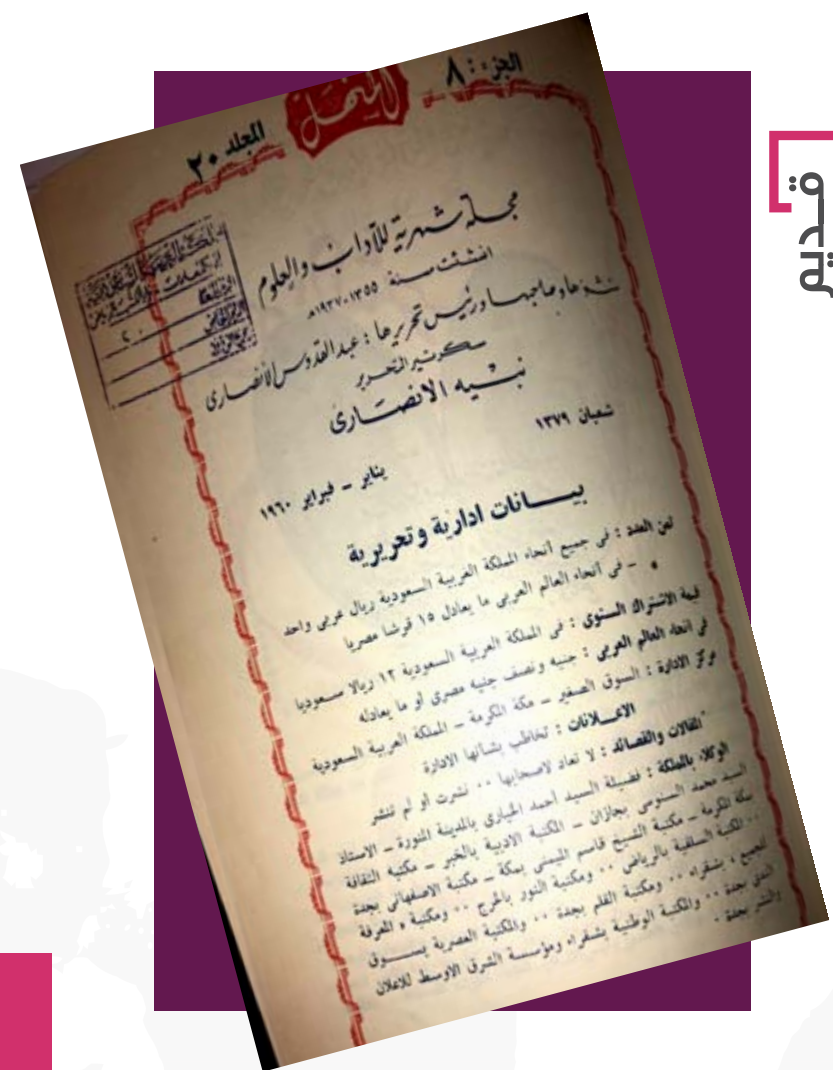 قديم
الجزء : ٨
المنهل
المجلد ٢٠
مجلة شهرية للآداب والعلوم
انشئت سنة ١٣٥٥-١٩٣٧م
منشئها وصاحبها ورئيس تحريرها : عبد القدوس الأنصارى
سكرتير التحرير
نبيه الانصارى
شعبان ١٣٧٩
يناير - فبراير ١٩٦٠
بيــانات ادارية وتحريرية
ثمن العدد : فى جميع أنحاء المملكة العربية السعودية ريال عربى واحد
» - فى أنحاء العالم العربى ما يعادل ١٥ قرشا مصريا
قيمة الاشتراك السنوى : فى المملكة العربية السعودية ١٢ ريالا سعوديا
فى انحاء العالم العربى : جنيه ونصف جنيه مصرى او ما يعادله
مركز الادارة : السوق الصغير - مكة المكرمة - المملكة العربية السعودية
الاعــلانات : تخاطب بشأنها الادارة
المقالات والقصائد : لا تعاد لاصحابها ٠٠ نشرت أو لم تنشر
الوكلاء بالمملكة : فضيلة السيد أحمد الخيارى بالمدينة المنورة - الاستاذ
السيد محمد السنوسى بجازان - المكتبة الادبية بالخبر - مكتبة الثقافة
بمكة المكرمة - مكتبة الشيخ قاسم الميمنى بمكة - مكتبة الاصفهانى بجدة
٠٠ المكتبة السلفية بالرياض ٠٠ ومكتبة النور بالخرج ٠٠ ومكتبة « المعرفة
للجميع » بشقراء ٠٠ ومكتبة القلم بجدة ٠٠ والمكتبة العصرية بســوق
الندى بجدة ٠٠ والمكتبة الوطنية بشقراء ومؤسسة الشرق الاوسط للاعلان
والنشر بجدة ٠